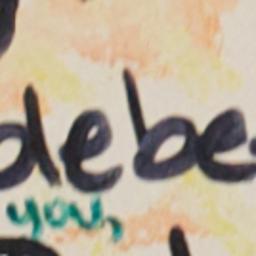 debe
you,